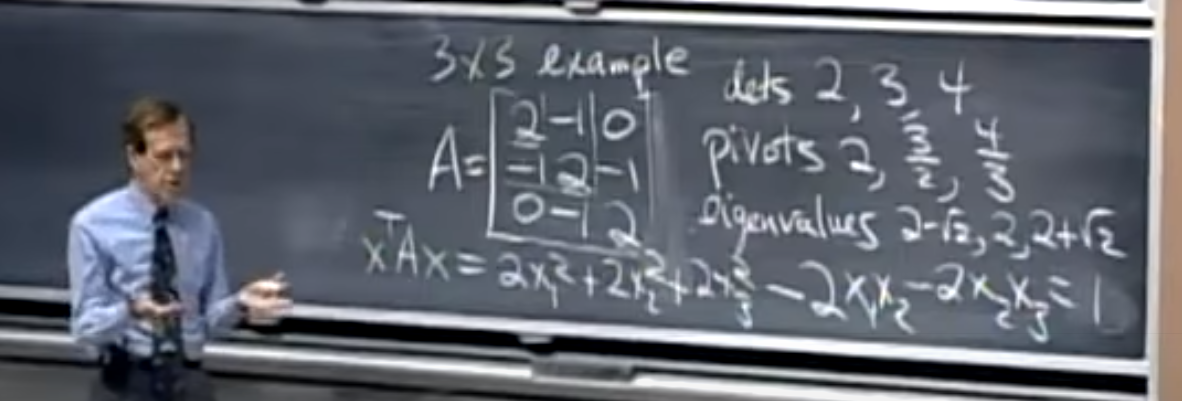 3x3 example
dets 2, 3, 4
A = [2 -1 0
-1 2 -1
0 -1 2]
pivots 2, 3/2, 4/3
eigenvalues 2-√2, 2, 2+√2
xᵀAx = 2x₁² + 2x₂² + 2x₃² - 2x₁x₂ - 2x₂x₃ = 1